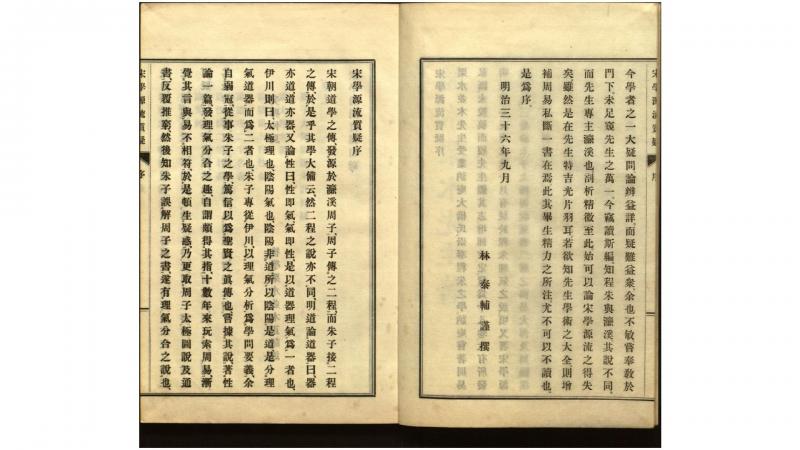 宋學源流質疑
序
今學者之一大疑問、論辨益詳、而疑難益衆、余也不敏、嘗奉敎於
門下、未足窺先生之萬一、今竊讀斯編、知程朱與濂溪其說不同、
而先生專主濂溪也、剖析精微至此、始可以論宋學源流之得失
矣、雖然是在先生特吉光片羽耳、若欲知先生學術之大全、則增
補周易私斷一書在焉、此其畢生精力之所注、尤不可以不讀也、
是爲序、
明治三十六年九月
林泰輔謹撰
宋學源流質疑序
宋朝道學之傳、發源於濂溪周子、周子傳之二程、而朱子接二程
之傳、於是乎其學大備云、然二程之說亦不同、明道論道器曰、器
亦道、道亦器、又論性曰、性即氣、氣即性、是以道器理氣爲一者也、
伊川則曰、太極理也、陰陽氣也、陰陽非道、所以陰陽是道、是分理
氣道器而爲二者也、朱子專從伊川、以理氣分析爲學問要義、余
自弱冠從事朱子之學、篤信以爲聖賢之眞傳也、嘗據其說、著性
論一篇、發理氣分合之趣、自謂頗得其指、十數年來、玩索周易、漸
覺其言與易不相符、於是頓生疑惑、乃更取周子太極圖說及通
書、反覆推窮、然後知朱子誤解周子之書、遂有理氣分合之說也、
宋學源流質疑
序